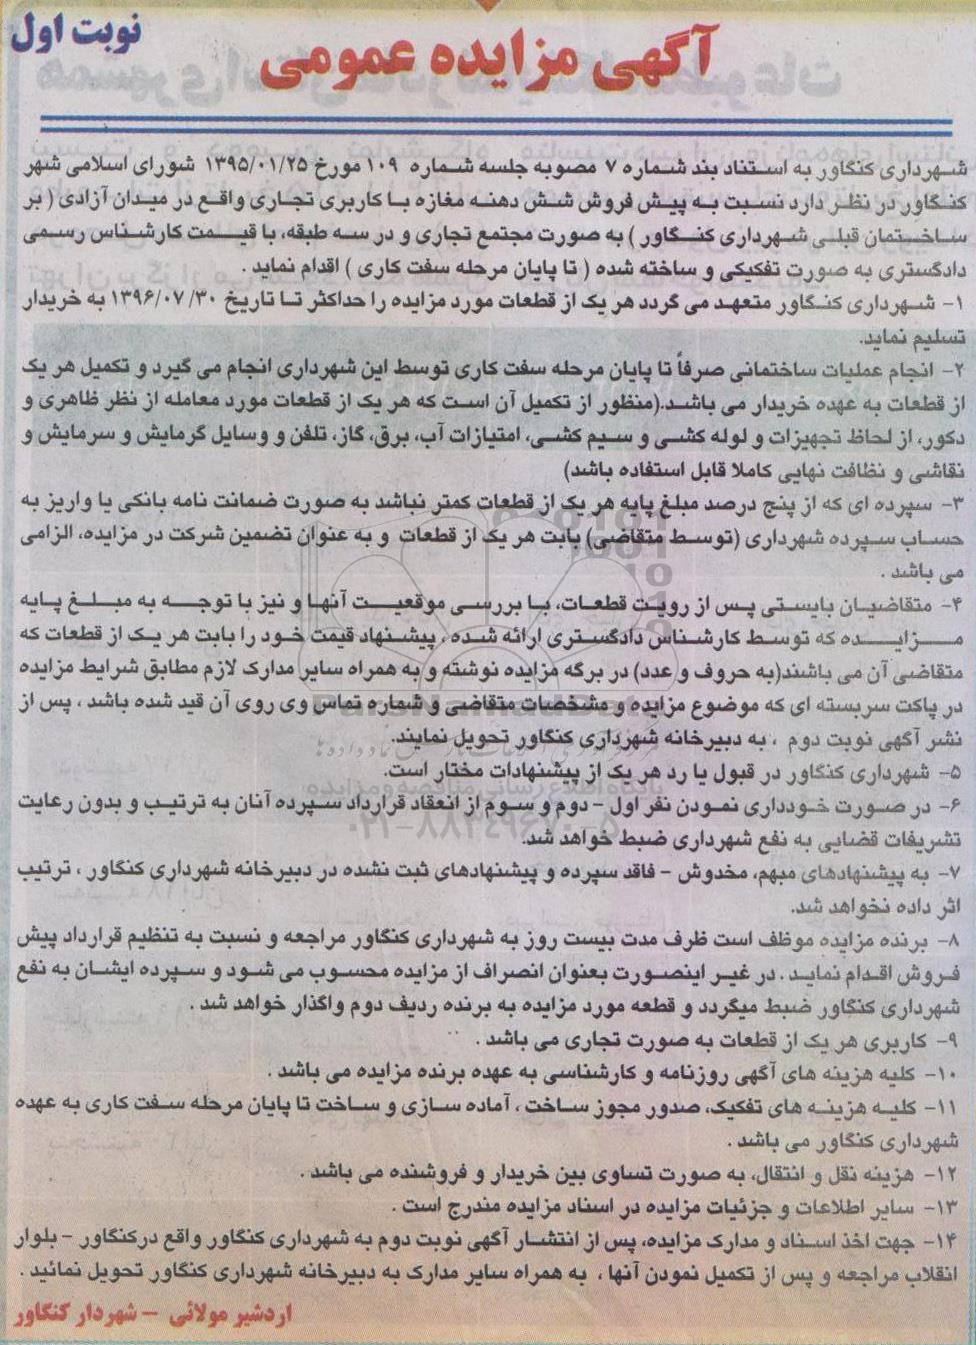 نوبت اول
آگهی مزایده عمومی
شهرداری کنگاور به استناد بند شماره ۷ مصوبه جلسه شماره ۱۰۹ مورخ ۱۳۹۵/۰۱/۲۵ شورای اسلامی شهر
کنگاور در نظر دارد نسبت به پیش فروش شش دهنه مغازه با کاربری تجاری واقع در میدان آزادی ( بر
ساختمان قبلی شهرداری کنگاور ) به صورت مجتمع تجاری و در سه طبقه، با قیمت کارشناس رسمی
دادگستری به صورت تفکیکی و ساخته شده ( تا پایان مرحله سفت کاری ) اقدام نماید .
۱- شهرداری کنگاور متعهد می گردد هر یک از قطعات مورد مزایده را حداکثر تا تاریخ ۱۳۹۶/۰۷/۳۰ به خریدار
تسلیم نماید.
۲- انجام عملیات ساختمانی صرفاً تا پایان مرحله سفت کاری توسط این شهرداری انجام می گیرد و تکمیل هر یک
از قطعات به عهده خریدار می باشد.(منظور از تکمیل آن است که هر یک از قطعات مورد معامله از نظر ظاهری و
دکور، از لحاظ تجهیزات و لوله کشی و سیم کشی، امتیازات آب، برق، گاز، تلفن و وسایل گرمایش و سرمایش و
نقاشی و نظافت نهایی کاملا قابل استفاده باشد)
۳- سپرده ای که از پنج درصد مبلغ پایه هر یک از قطعات کمتر نباشد به صورت ضمانت نامه بانکی یا واریز به
حساب سپرده شهرداری (توسط متقاضی) بابت هر یک از قطعات و به عنوان تضمین شرکت در مزایده، الزامی
می باشد .
۴- متقاضیان بایستی پس از رویت قطعات، با بررسی موقعیت آنها و نیز با توجه به مبلغ پایه
مزایده که توسط کارشناس دادگستری ارائه شده ، پیشنهاد قیمت خود را بابت هر یک از قطعات که
متقاضی آن می باشند(به حروف و عدد) در برگه مزایده نوشته و به همراه سایر مدارک لازم مطابق شرایط مزایده
در پاکت سربسته ای که موضوع مزایده و مشخصات متقاضی و شماره تماس وی روی آن قید شده باشد ، پس از
نشر آگهی نوبت دوم ، به دبیرخانه شهرداری کنگاور تحویل نمایند.
۵- شهرداری کنگاور در قبول یا رد هر یک از پیشنهادات مختار است.
۶- در صورت خودداری نمودن نفر اول - دوم و سوم از انعقاد قرارداد سپرده آنان به ترتیب و بدون رعایت
تشریفات قضایی به نفع شهرداری ضبط خواهد شد.
۷- به پیشنهادهای مبهم، مخدوش - فاقد سپرده و پیشنهادهای ثبت نشده در دبیرخانه شهرداری کنگاور ، ترتیب
اثر داده نخواهد شد.
۸- برنده مزایده موظف است ظرف مدت بیست روز به شهرداری کنگاور مراجعه و نسبت به تنظیم قرارداد پیش
فروش اقدام نماید . در غیر اینصورت بعنوان انصراف از مزایده محسوب می شود و سپرده ایشان به نفع
شهرداری کنگاور ضبط میگردد و قطعه مورد مزایده به برنده ردیف دوم واگذار خواهد شد .
۹- کاربری هر یک از قطعات به صورت تجاری می باشد .
۱۰- کلیه هزینه های آگهی روزنامه و کارشناسی به عهده برنده مزایده می باشد .
۱۱- کلیه هزینه های تفکیک، صدور مجوز ساخت ، آماده سازی و ساخت تا پایان مرحله سفت کاری به عهده
شهرداری کنگاور می باشد .
۱۲- هزینه نقل و انتقال، به صورت تساوی بین خریدار و فروشنده می باشد .
۱۳- سایر اطلاعات و جزئیات مزایده در اسناد مزایده مندرج است .
۱۴- جهت اخذ اسناد و مدارک مزایده، پس از انتشار آگهی نوبت دوم به شهرداری کنگاور واقع در کنگاور - بلوار
انقلاب مراجعه و پس از تکمیل نمودن آنها ، به همراه سایر مدارک به دبیرخانه شهرداری کنگاور تحویل نمائید .
اردشیر مولائی - شهردار کنگاور
ParsNamadData
پایگاه اطلاع رسانی مناقصه و مزایده
۰۲۱-۸۸۳۴۹۶۷۰-۵